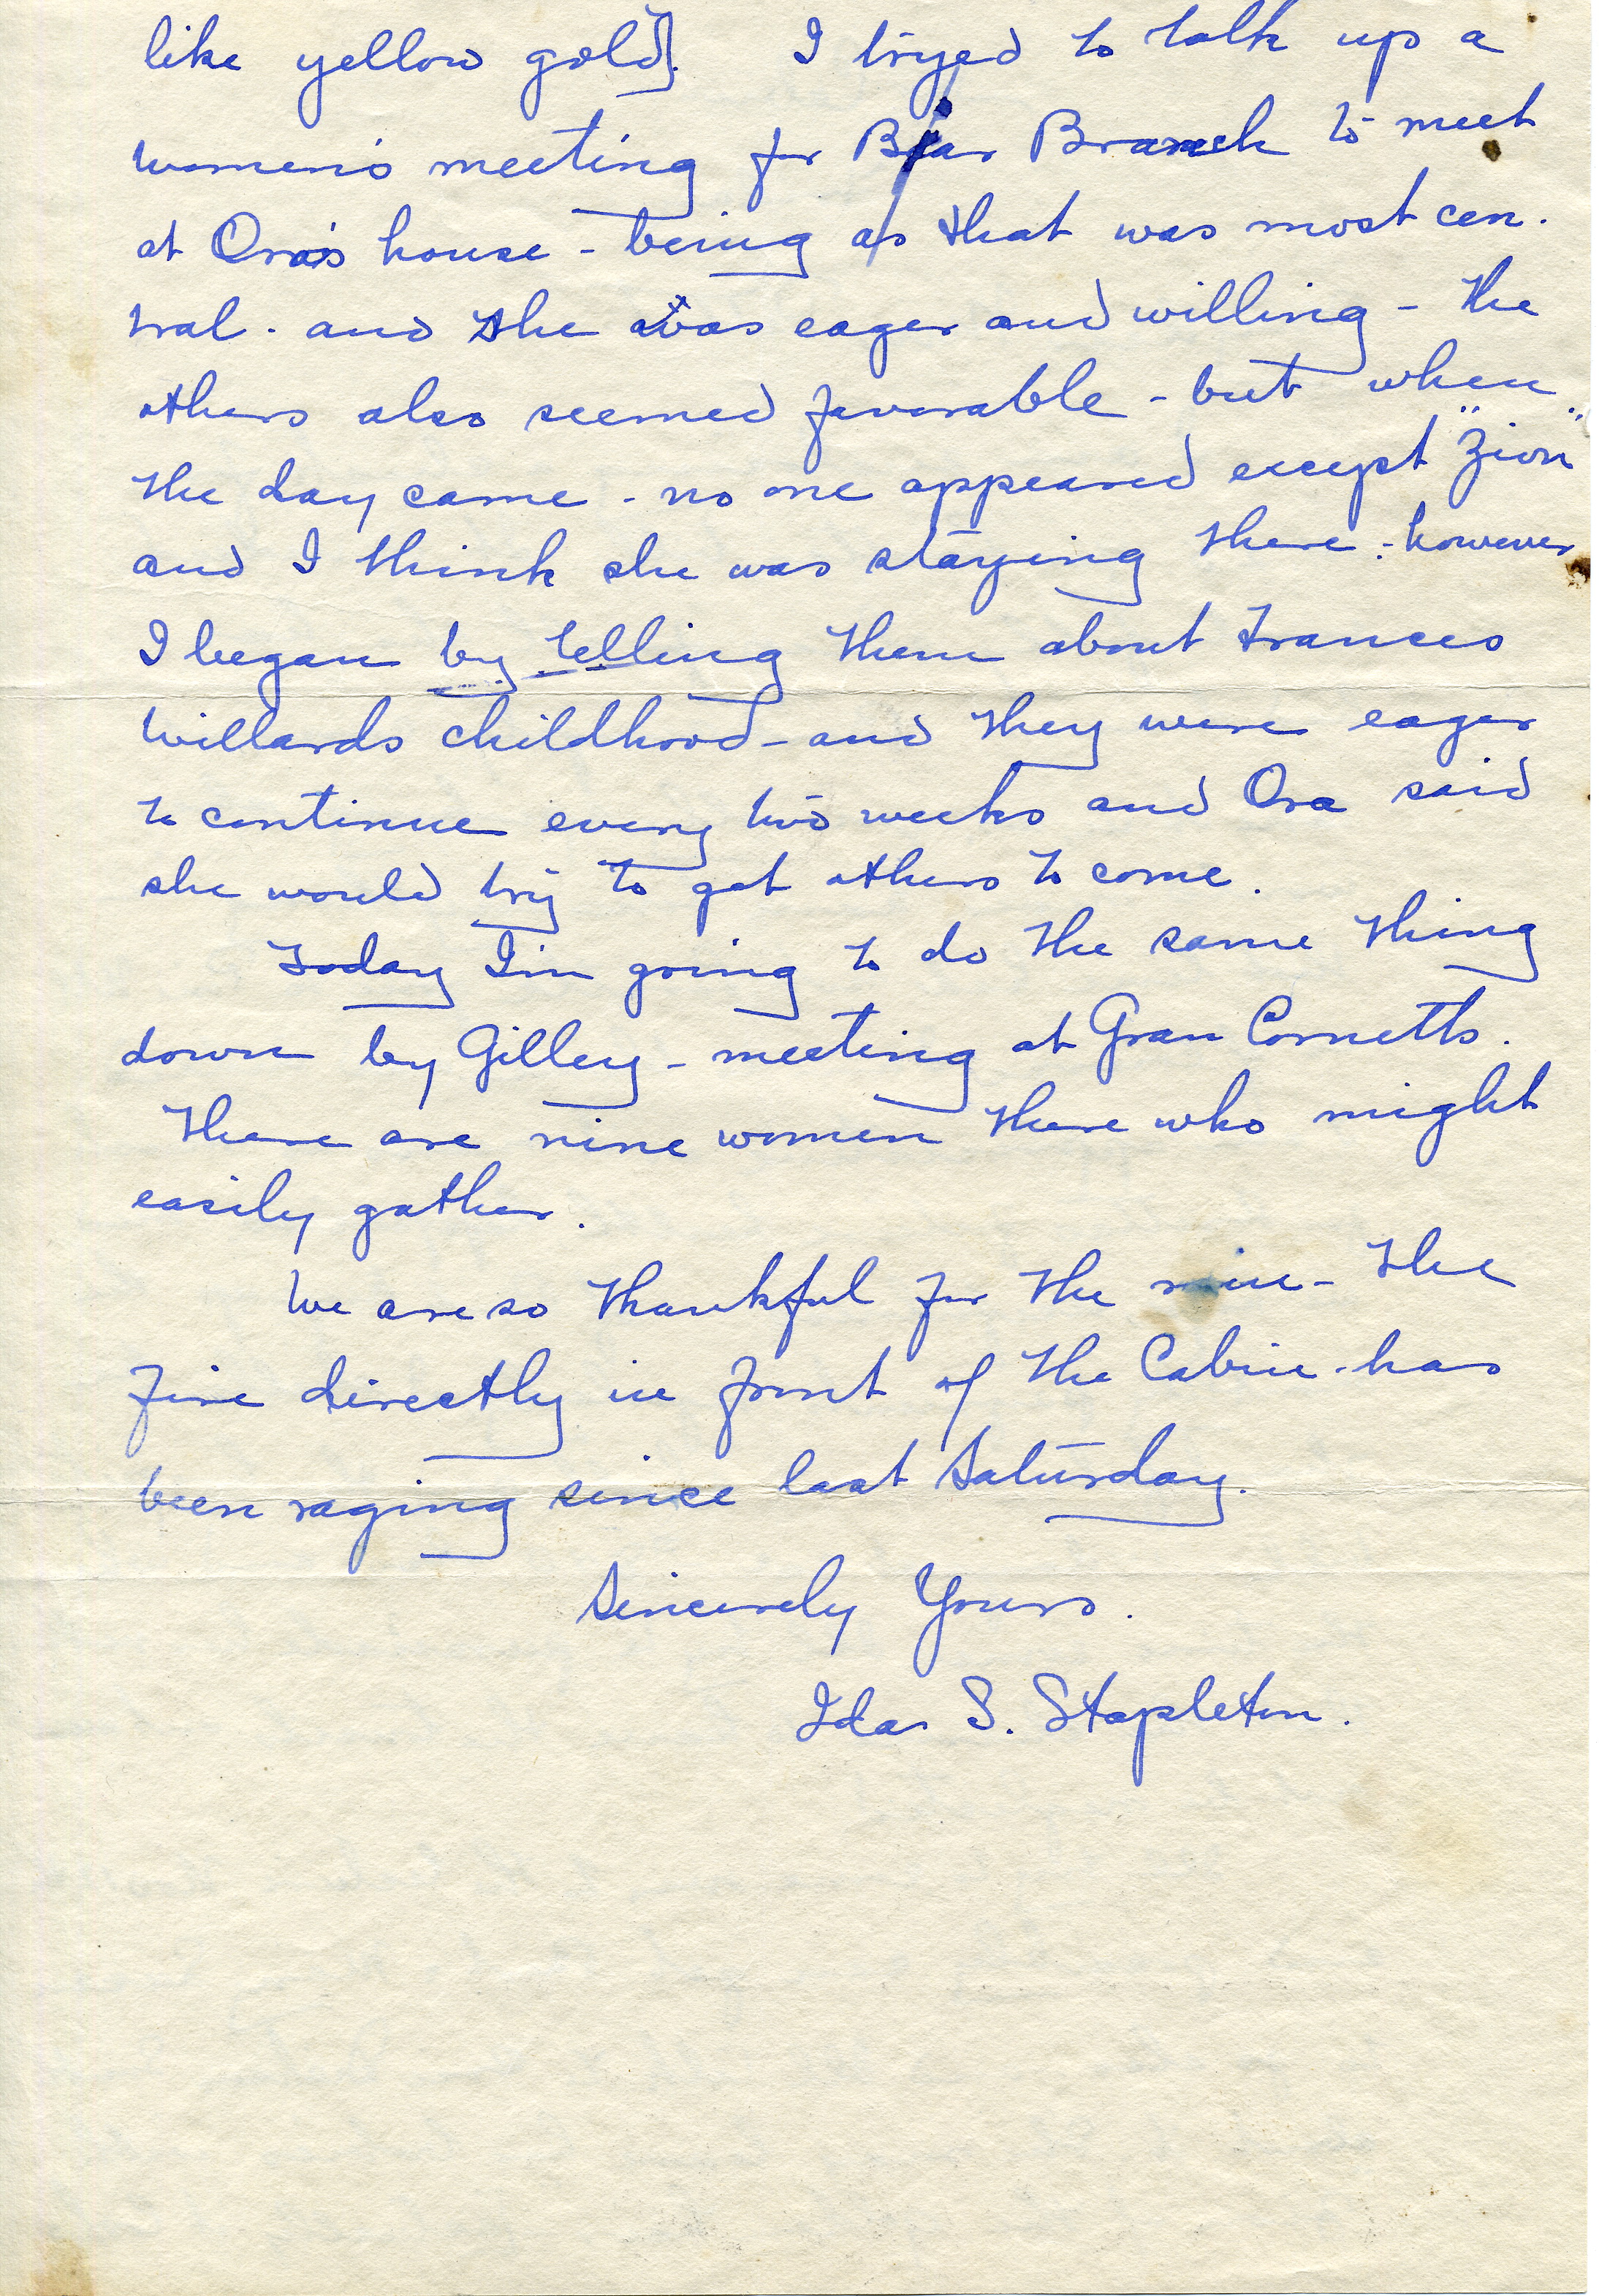 like yellow gold]. I tryed to talk up a
women's meeting for Bear Branch to meet
at Ora's house - being as that was most cen-
tral - and she was eager and willing - The
others also seemed favorable - but when
the day came - no one appeared except "Zion"
and I think she was staying there - however
I began by telling them about Frances
Willards childhood - and they were eager
to continue every two weeks and Ora said
she would try to get others to come.
Today I'm going to do the same thing
down by Gilley - meeting at Gran Cornetts.
There are nine women there who might
easily gather.
We are so thankful for the rain - The
fire directly in front of the Cabin - has
been raging since last Saturday.
Sincerely Yours.
Ida S. Stapleton.